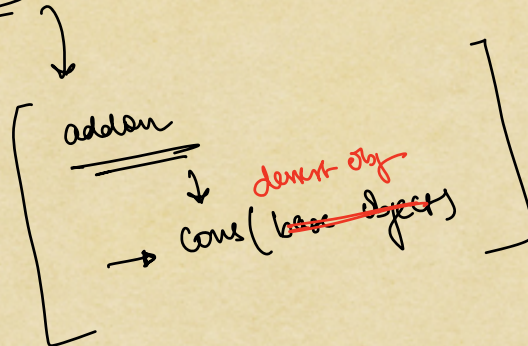 addon
dessert obj
cons( base object)